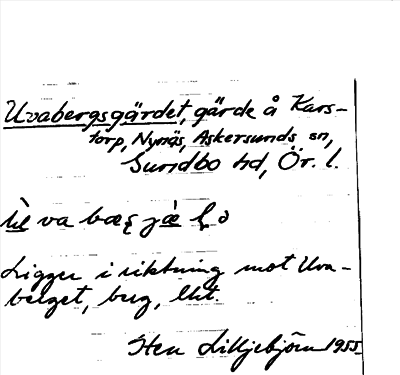 Uvabergsgärdet, gärde å Kars-
torp, Nynäs, Askersunds sn,
Sundbo hd, Ör. l.
va
Ligger i riktning mot Uva-
berget, berg, likt.
Sten Lilljebjörn 1955